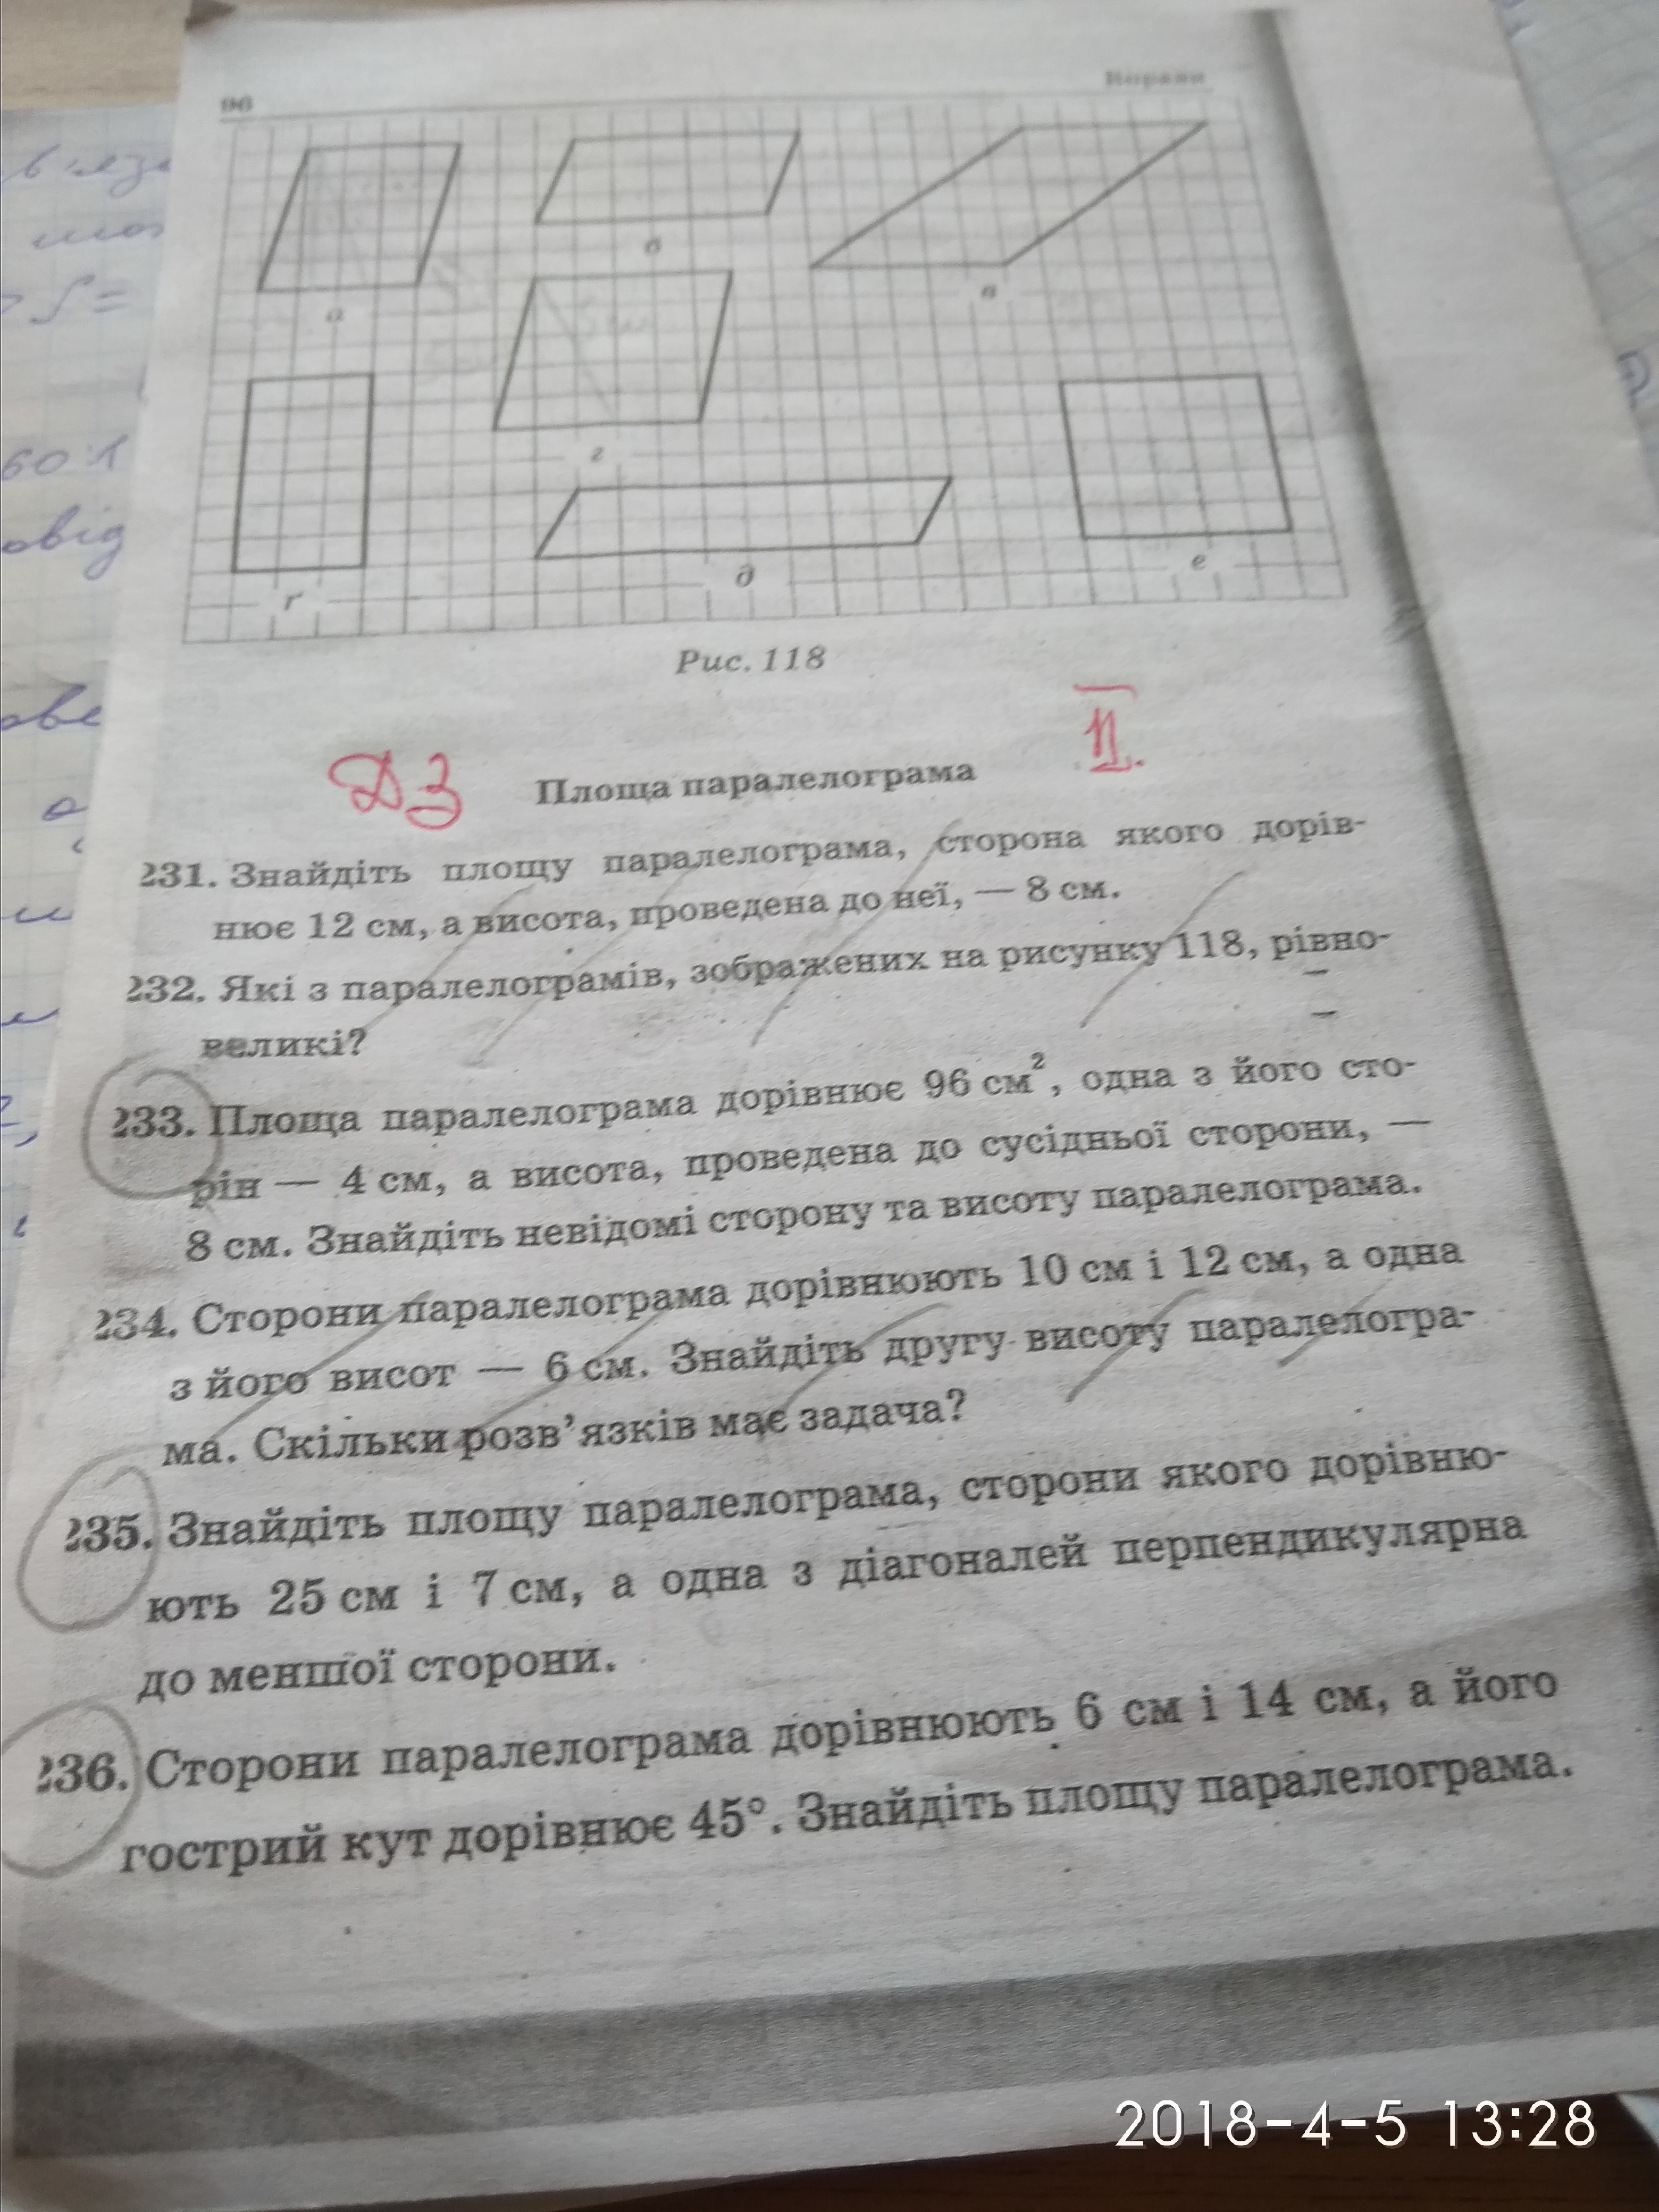 96
Вправи
а
б
в
г
ґ
д
е
Рис. 118
ДЗ
II.
Площа паралелограма
231. Знайдіть площу паралелограма, сторона якого дорів-
нює 12 см, а висота, проведена до неї, — 8 см.
232. Які з паралелограмів, зображених на рисунку 118, рівно-
великі?
233. Площа паралелограма дорівнює 96 см², одна з його сто-
рін — 4 см, а висота, проведена до сусідньої сторони, —
8 см. Знайдіть невідомі сторону та висоту паралелограма.
234. Сторони паралелограма дорівнюють 10 см і 12 см, а одна
з його висот — 6 см. Знайдіть другу висоту паралелогра-
ма. Скільки розв’язків має задача?
235. Знайдіть площу паралелограма, сторони якого дорівню-
ють 25 см і 7 см, а одна з діагоналей перпендикулярна
до меншої сторони.
236. Сторони паралелограма дорівнюють 6 см і 14 см, а його
гострий кут дорівнює 45°. Знайдіть площу паралелограма.
S=
60
овід
2018-4-5 13:28